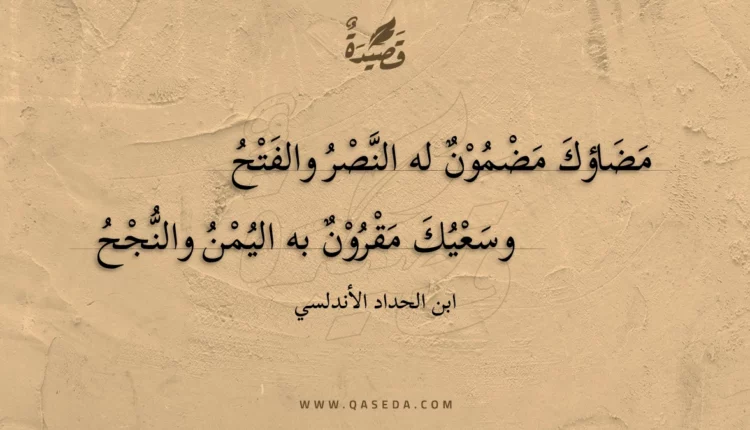 قَصِيدَةٌ
مَضَاؤكَ مَضْمُوْنٌ له النَّصْرُ والفَتْحُ
وسَعْيُكَ مَقْرُوْنٌ به اليُمْنُ والنُّجْحُ
ابن الحداد الأندلسي
WWW.QASEDA.COM